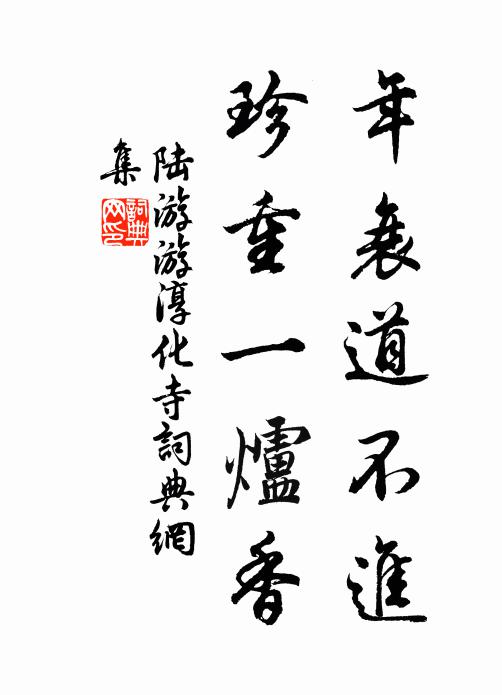 年衰道不進
珍重一爐香
陸游游淳化寺詞典網
集
詞典網印